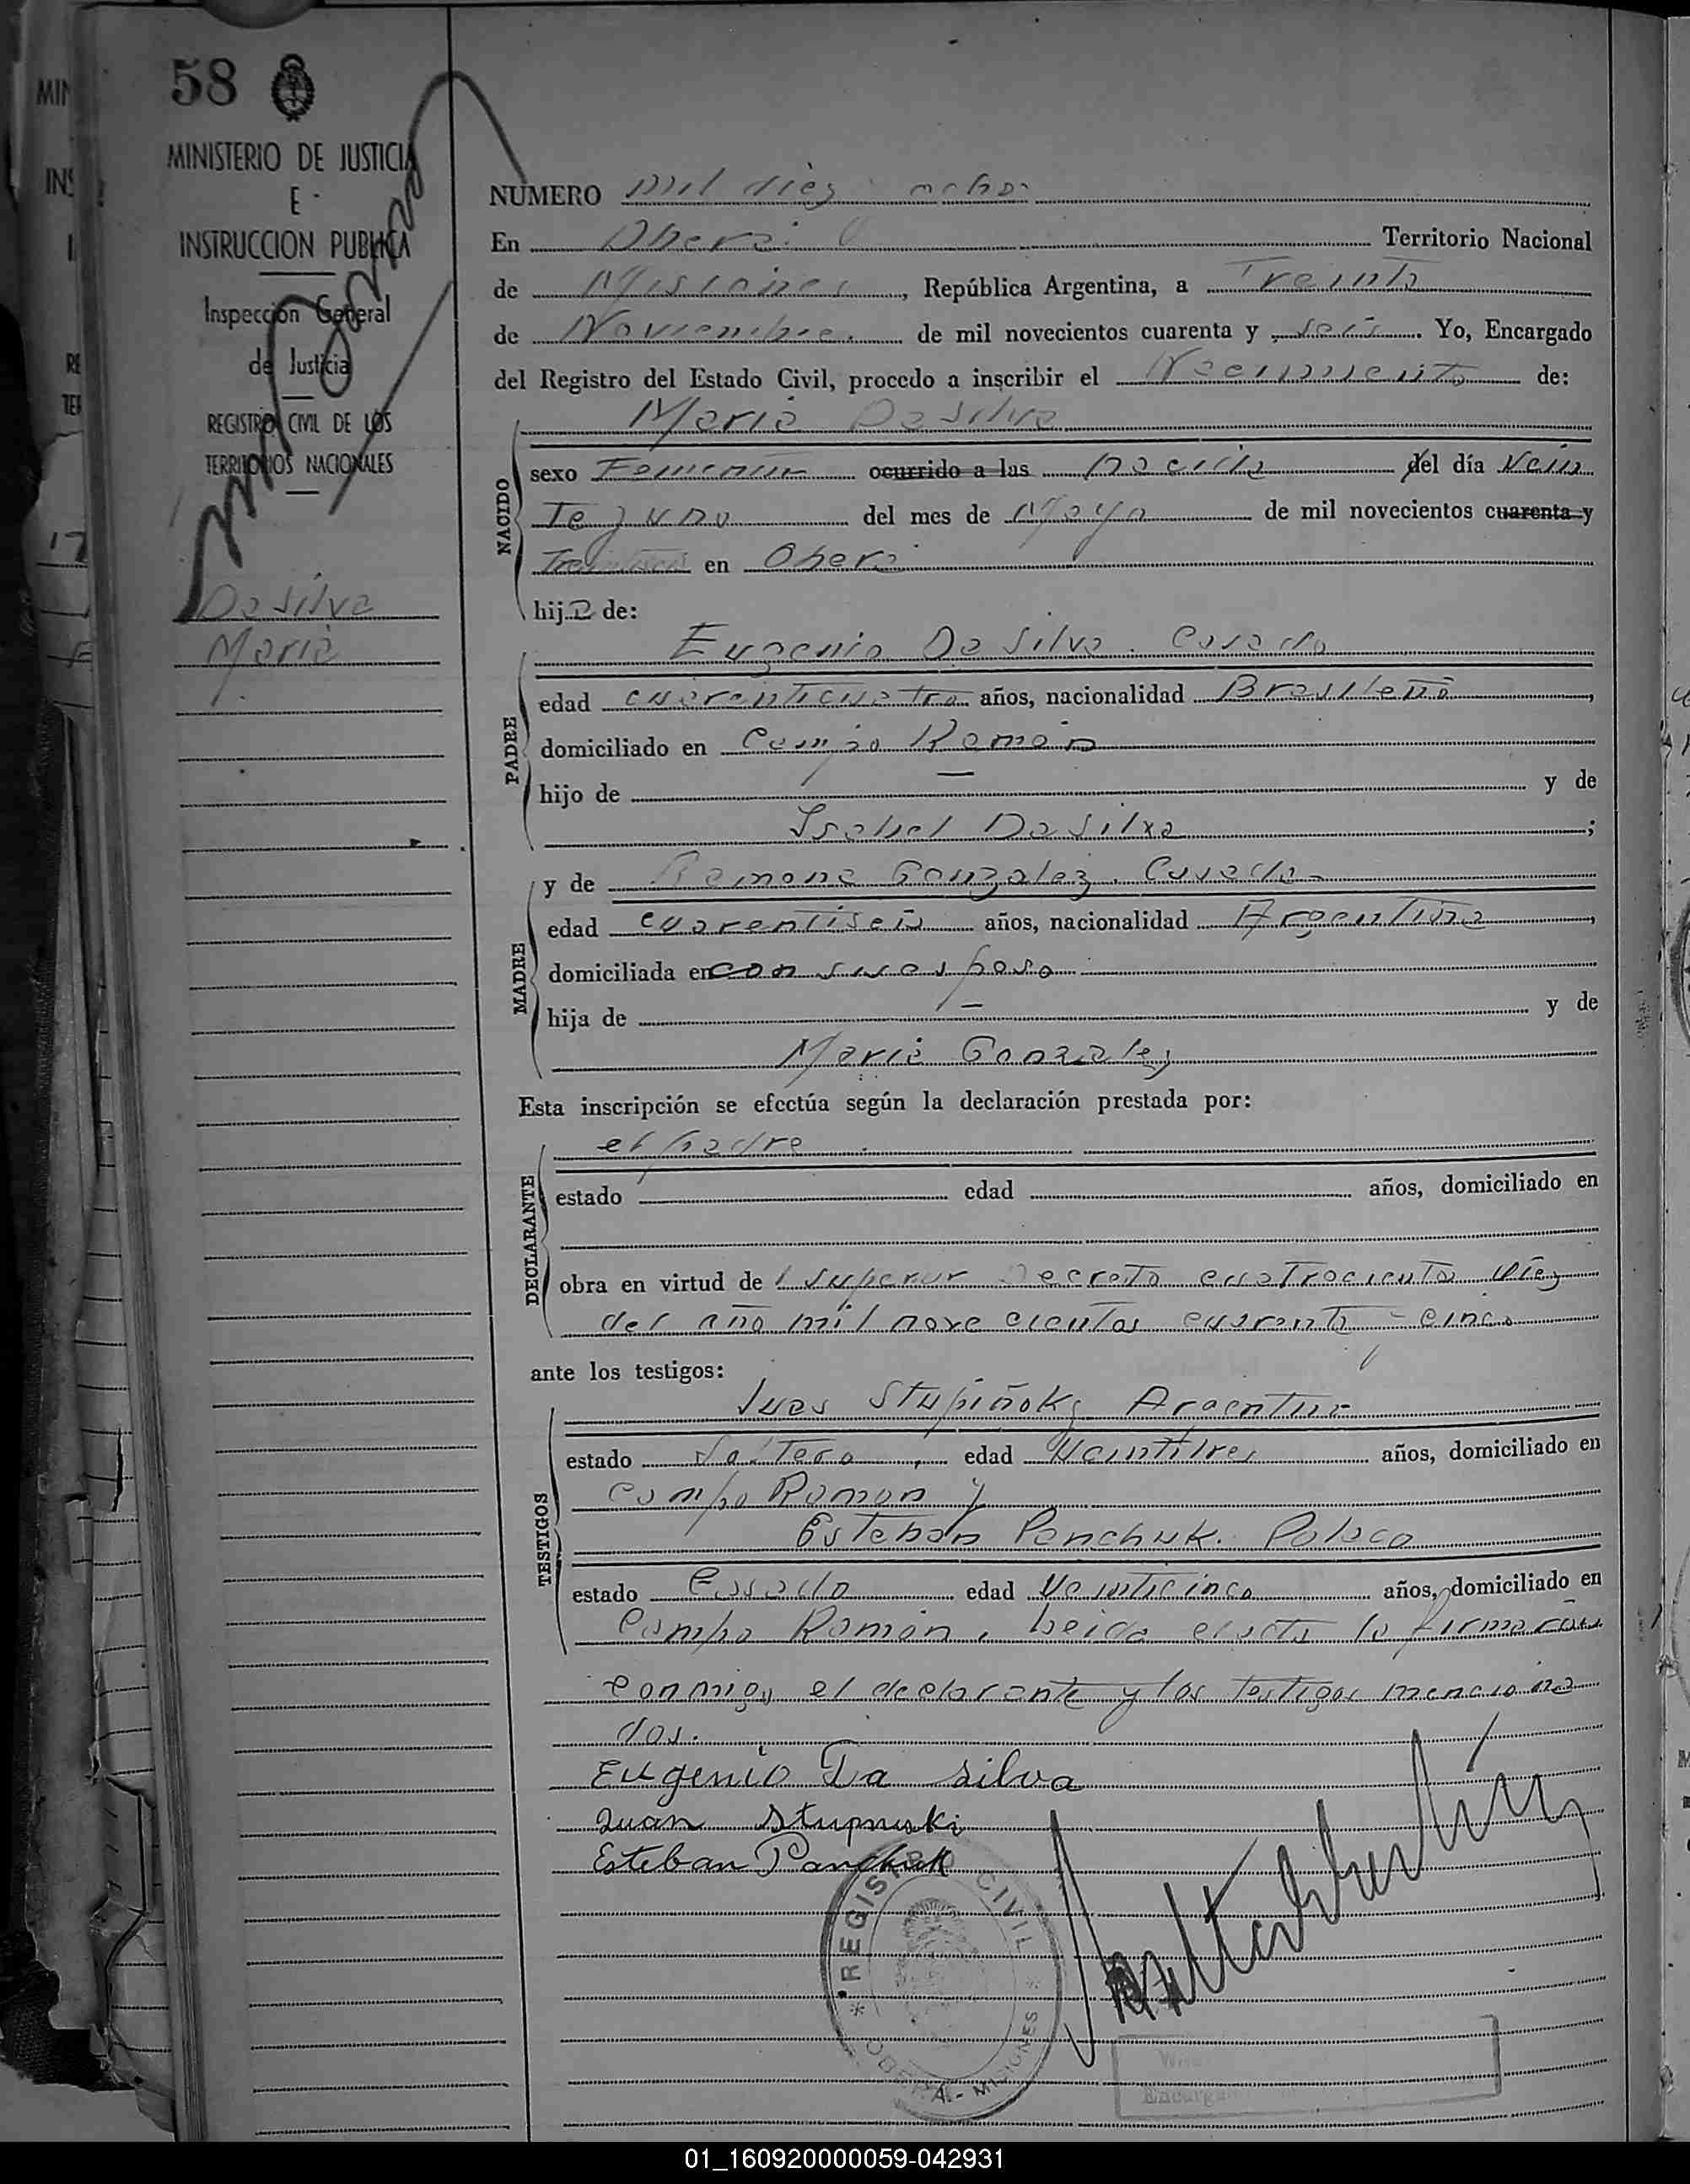 58
MINISTERIO DE JUSTICIA
E
INSTRUCCION PUBLICA
Inspección General
de Justicia
REGISTRO CIVIL DE LOS
TERRITORIOS NACIONALES
Da Silva
Maria
NUMERO mil diez ocho
En Oberá Territorio Nacional
de Misiones, República Argentina, a Treinta
de Noviembre de mil novecientos cuarenta y seis. Yo, Encargado
del Registro del Estado Civil, procedo a inscribir el Nacimiento de:
Maria Da Silva
NACIDO
sexo Femenino ocurrido a las nacida del día Vein
te y uno del mes de Mayo de mil novecientos cuarenta y
en Oberá
hija de:
PADRE
Eugenio Da Silva. Casado
edad cuarenticuatro años, nacionalidad Brasileño,
domiciliado en Campo Ramón
hijo de — y de
Isabel Da Silva;
MADRE
y de Ramona Gonzalez. Casada
edad cuarentiseis años, nacionalidad Argentina,
domiciliada en con su esposo
hija de — y de
Maria Gonzalez
Esta inscripción se efectúa según la declaración prestada por:
DECLARANTE
el padre
estado edad años, domiciliado en
obra en virtud del Superior Decreto cuatrociento diez
del año mil nove cientos cuarenta y cinco
ante los testigos:
TESTIGOS
Argentino
estado Soltero, edad Veintitres años, domiciliado en
Campo Ramon y
Esteban Panchuk. Polaco
estado Casado edad Veinticinco años, domiciliado en
Campo Ramón. Leida el acta la firmaron
conmigo el declarante y los testigos menciona
dos.
Eugenio Da Silva
Juan Stupnuki
Esteban Panchuk
REGISTRO CIVIL
OBERA - MISIONES
Encarga
01_160920000059-042931